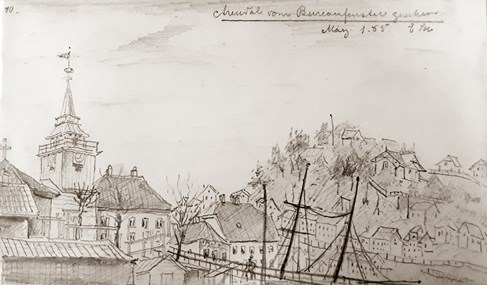 40.
Arendal vom Bureaufenster gesehen
März 1.85